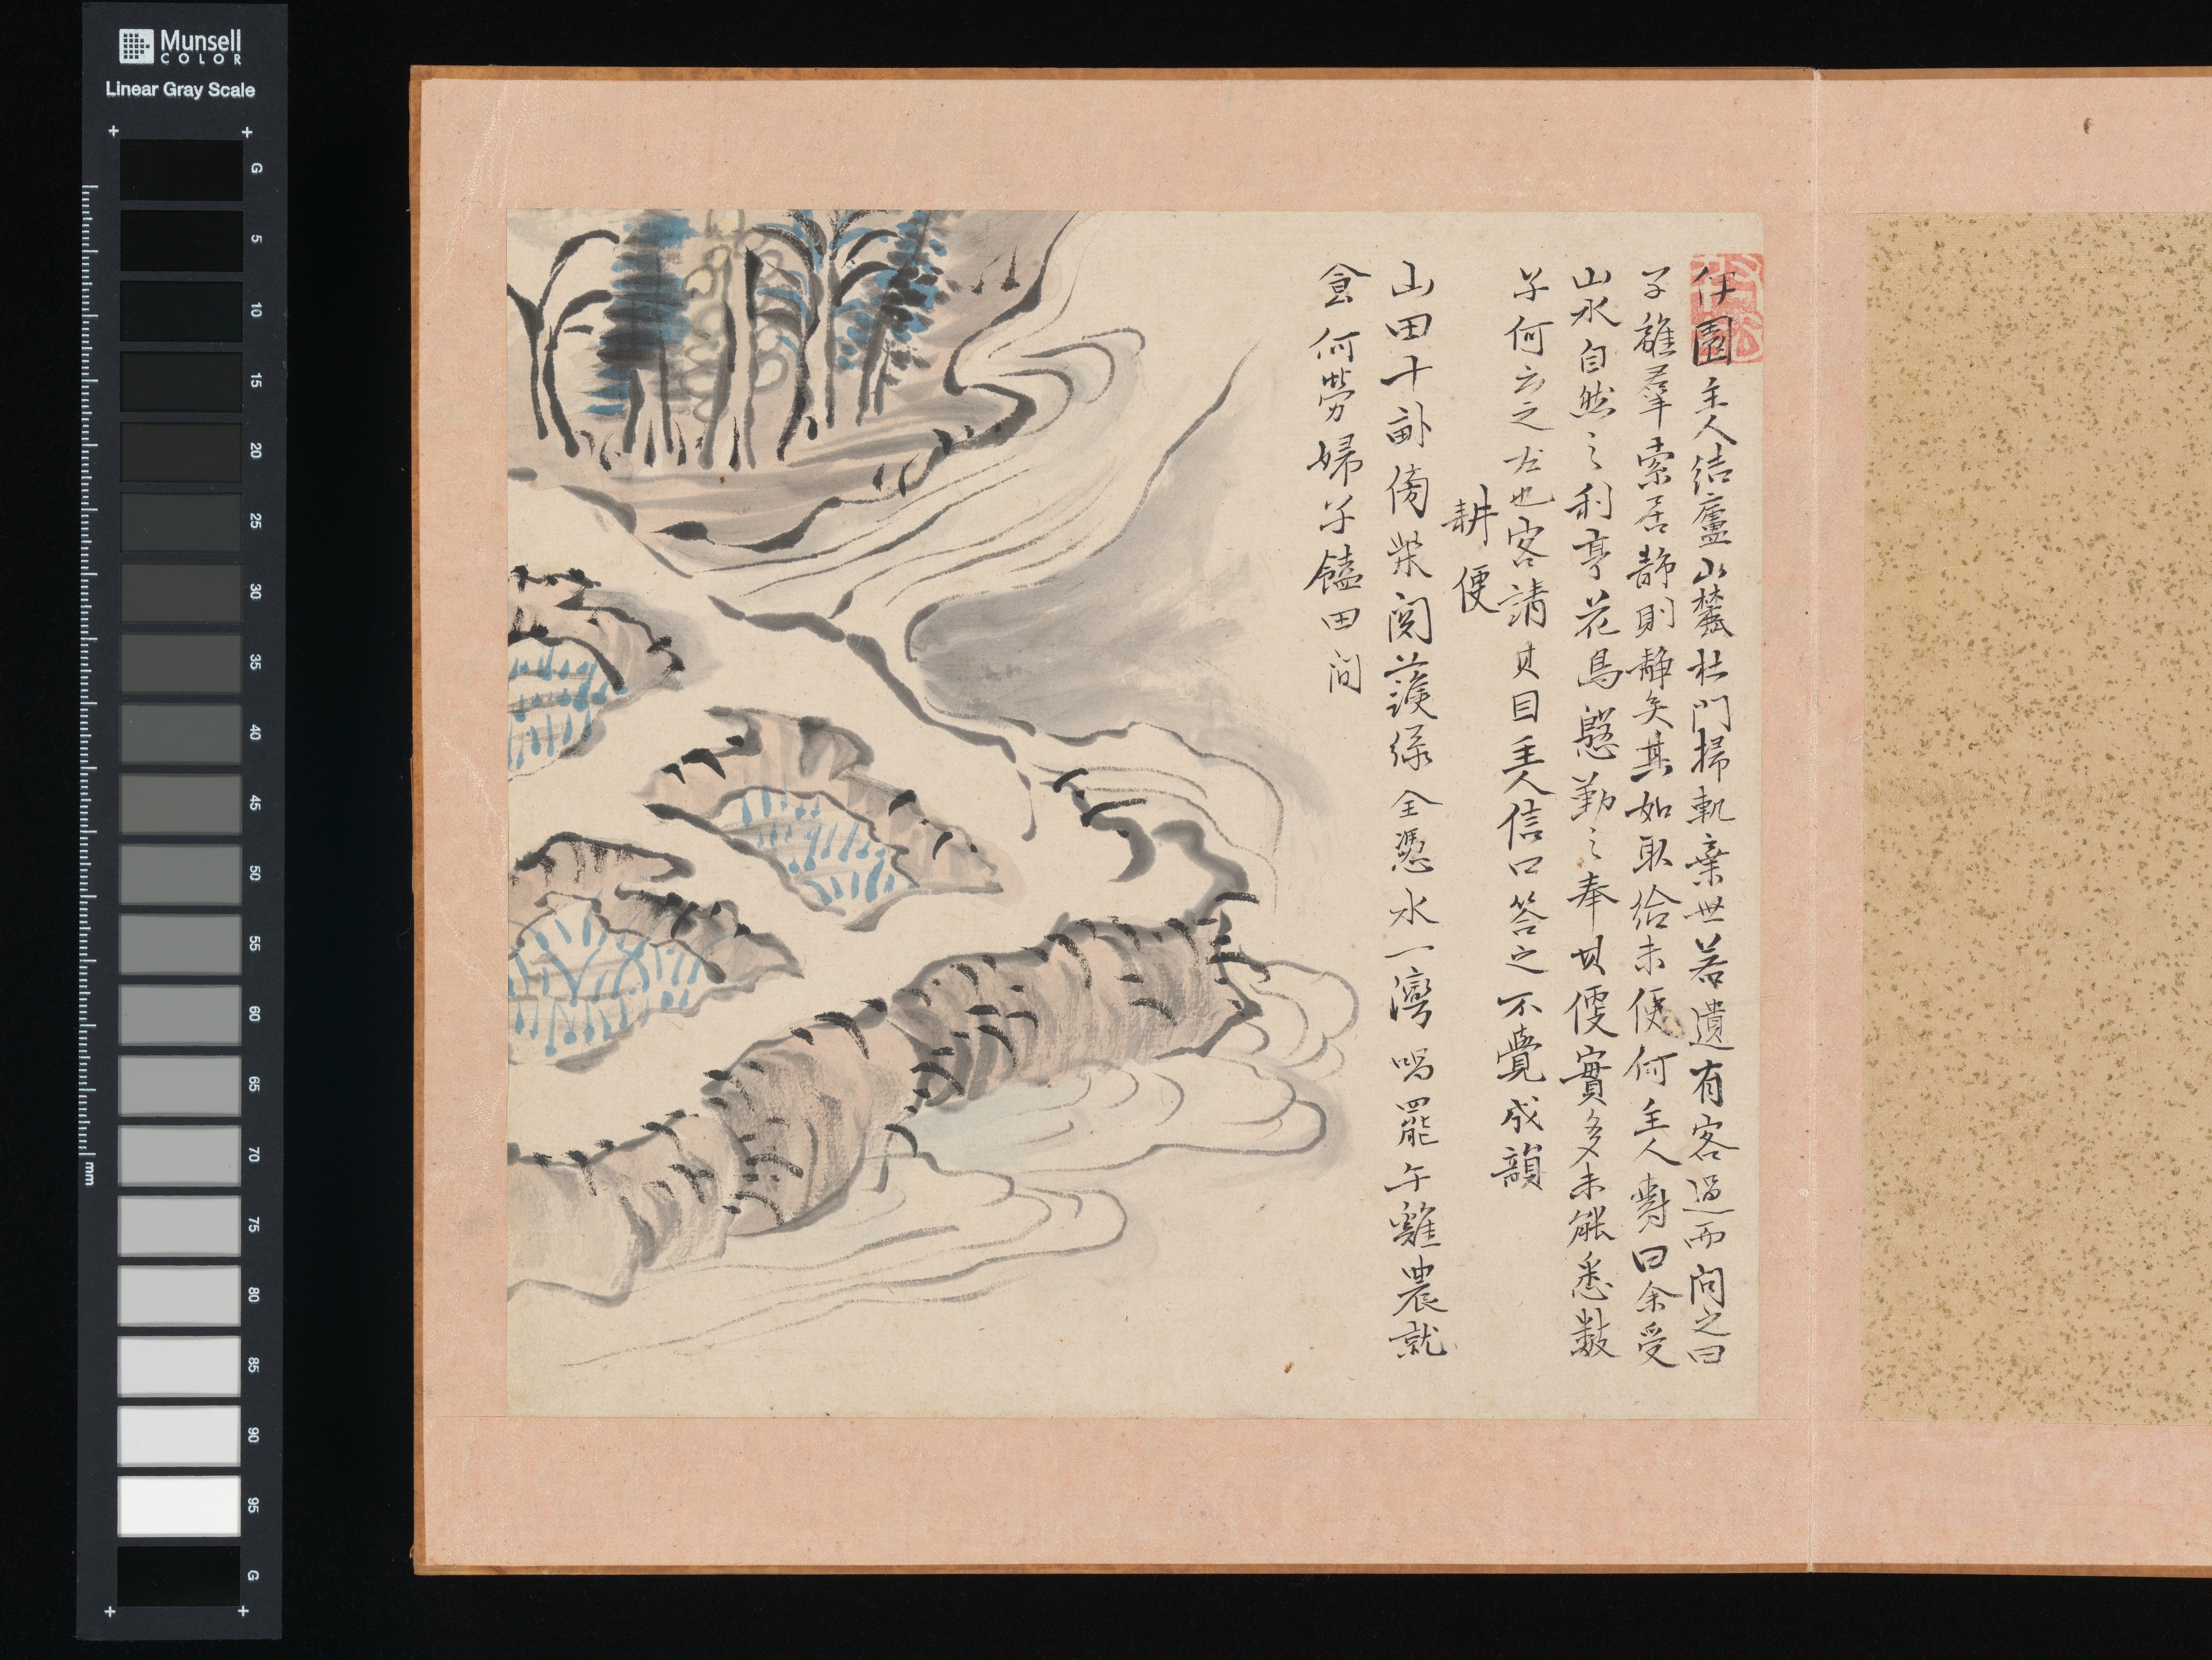 Munsell
COLOR
Linear Gray Scale
G
5
10
15
20
25
30
35
40
45
50
55
60
65
70
75
80
85
90
95
G
mm
伊園主人結廬山麓杜門掃軌棄世若遺有客過而問之曰
子離羣索居靜則靜矣其如取給未便何主人對曰余受
山水自然之利享花鳥慇勤之奉其便實多未能悉數
子何云之左也客請其目主人信口答之不覺成韻
耕便
山田十畝傍柴関護綠全憑水一灣唱罷午雞農就
食何勞婦子饁田间